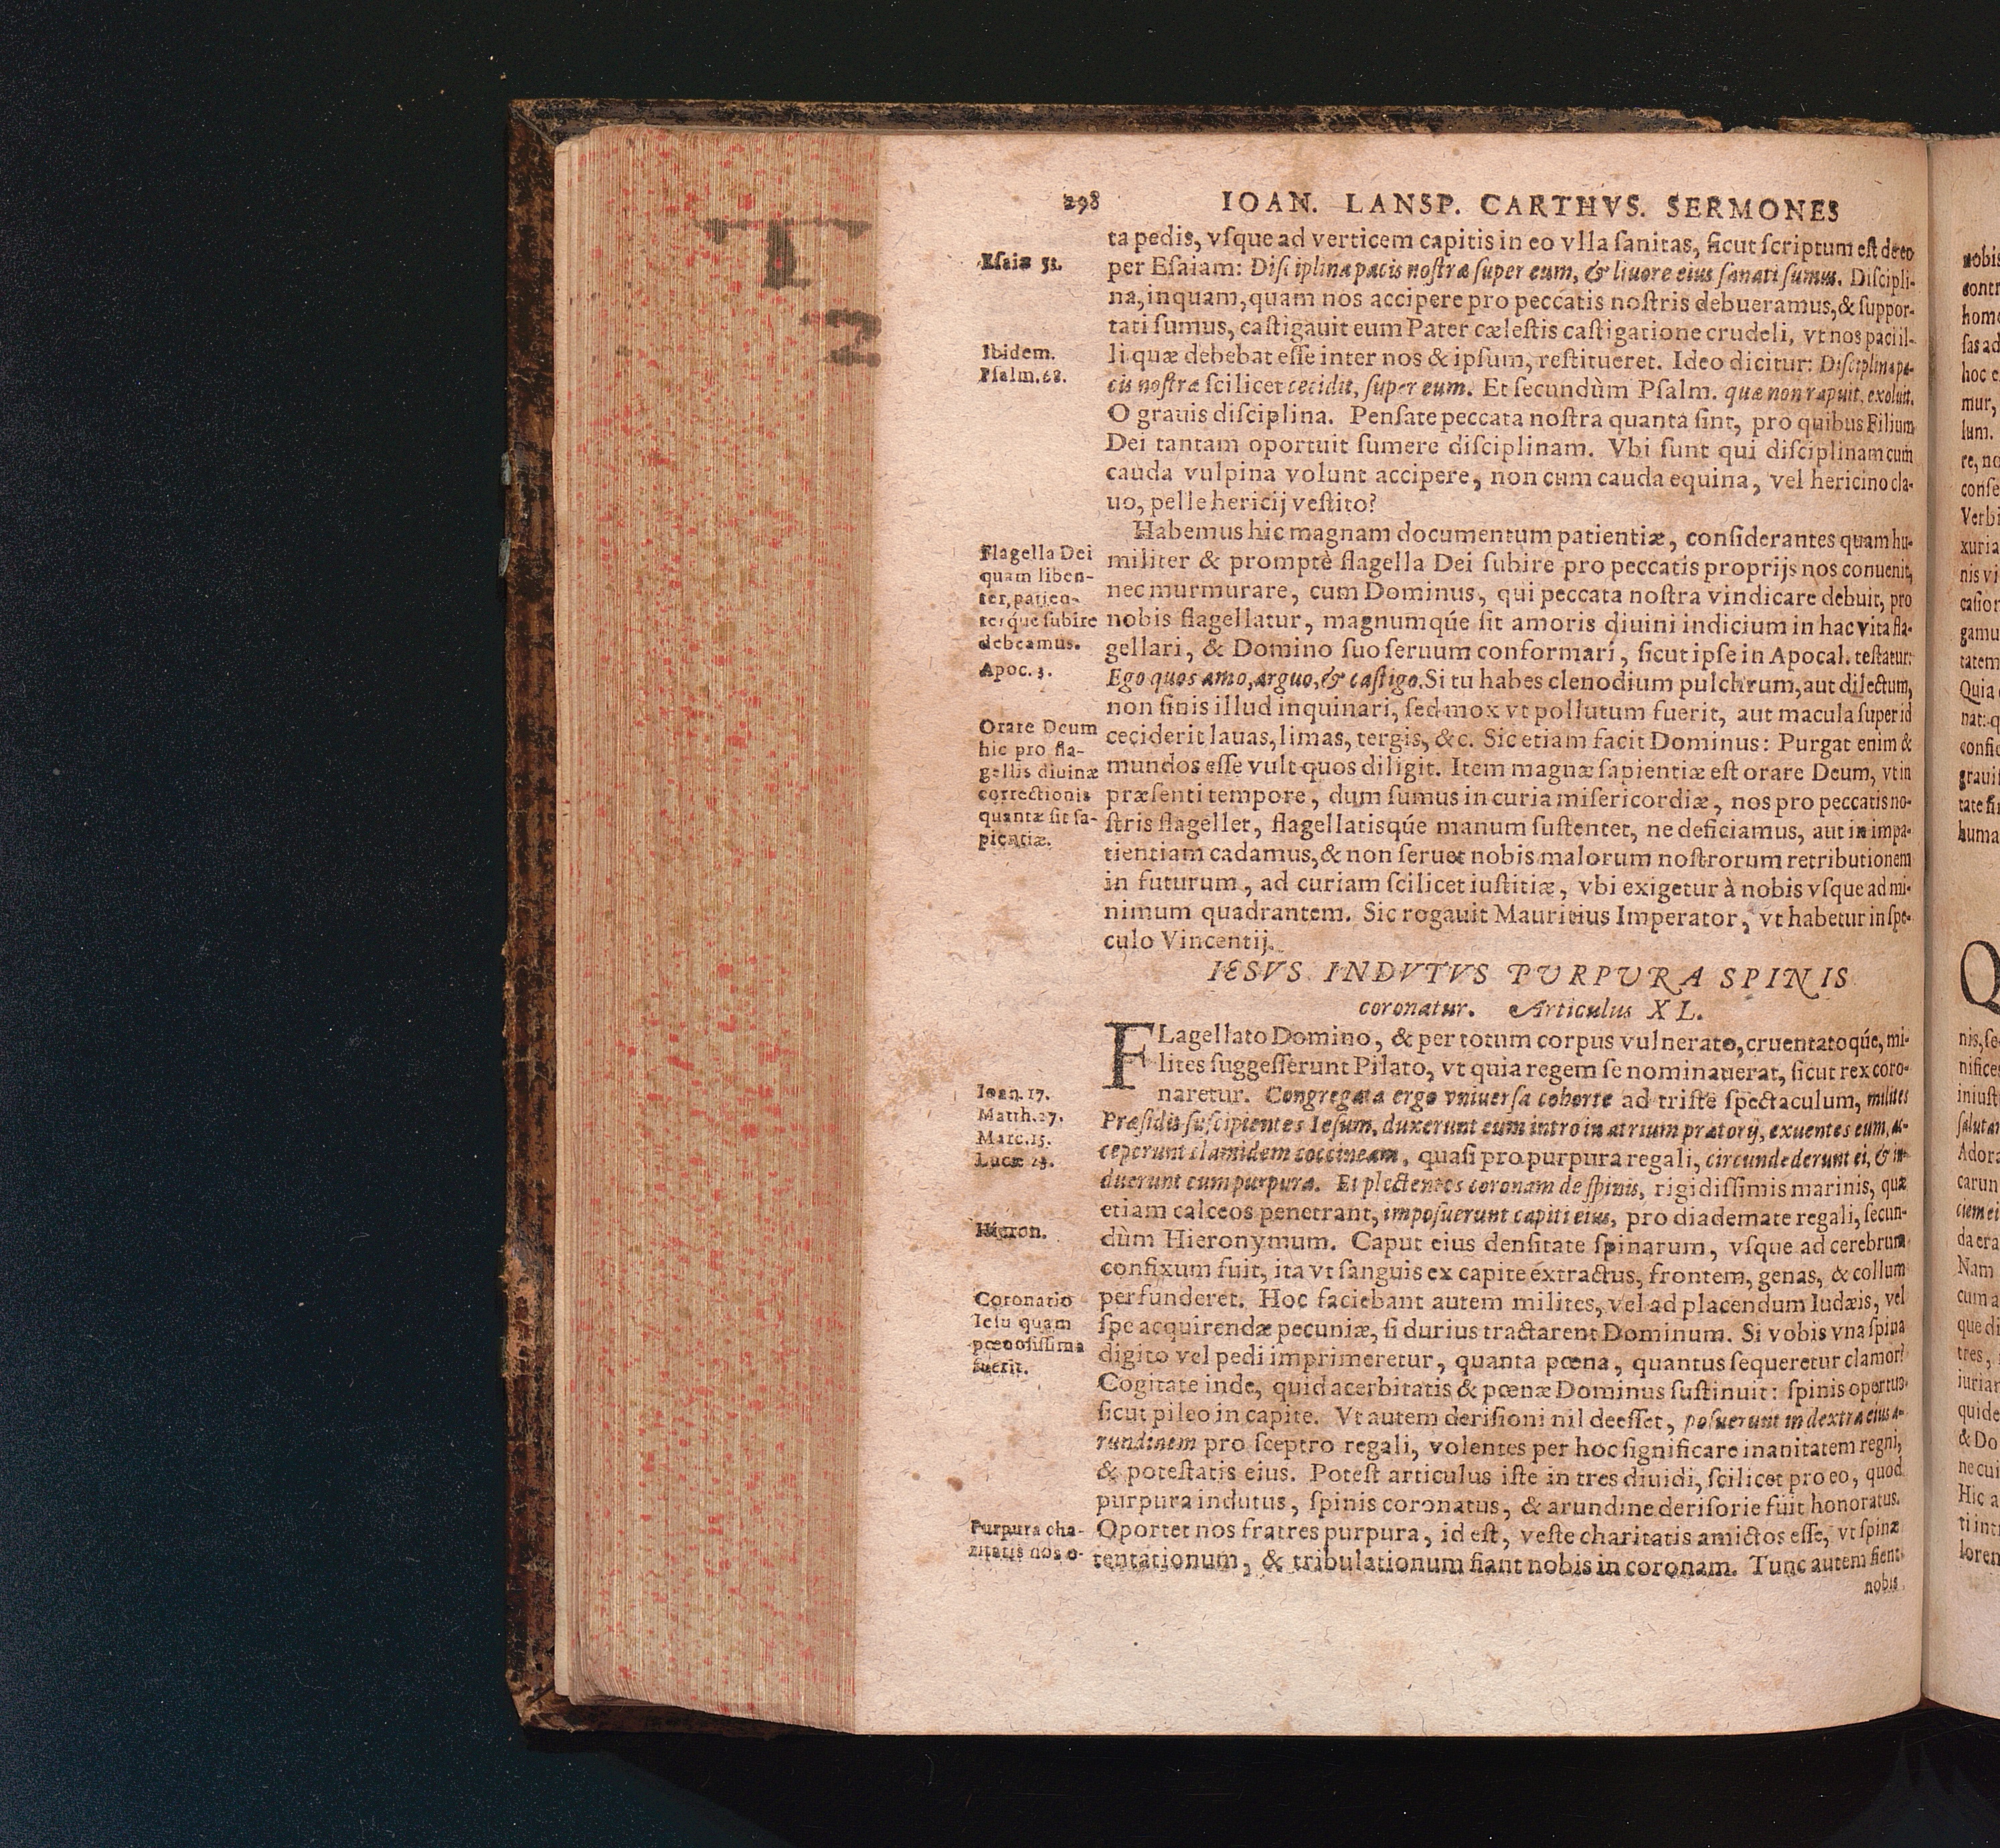 298 IOAN. LANSP. CARTHVS. SERMONES
ta pedis, vſque ad verticem capitis in eo vlla ſanitas, ſicut ſcriptum eſt de eo
Eſaiæ 53.
per Eſaiam: Diſciplina pacis noſtræ ſuper eum, & liuore eius ſanati ſumus. Diſcipli-
na, inquam, quam nos accipere pro peccatis noſtris debueramus, & ſuppor-
tati ſumus, caſtigauit eum Pater cæleſtis caſtigatione crudeli, vt nos paci il-
Ibidem.
li quæ debebat eſſe inter nos & ipſum, reſtitueret. Ideo dicitur: Diſciplina pa-
Pſalm. 68.
cis noſtræ ſcilicet cecidit, ſuper eum. Et ſecundùm Pſalm. quæ non rapuit, exoluit.
O grauis diſciplina. Penſate peccata noſtra quanta ſint, pro quibus Filium
Dei tantam oportuit ſumere diſciplinam. Vbi ſunt qui diſciplinam cum
cauda vulpina volunt accipere, non cum cauda equina, vel hericino cla-
uo, pelle hericij veſtito?
Habemus hic magnam documentum patientiæ, conſiderantes quam hu-
Flagella Dei
quam liben-
ter, patien-
terque ſubire
debeamus.
militer & promptè flagella Dei ſubire pro peccatis proprijs nos conuenit,
nec murmurare, cum Dominus, qui peccata noſtra vindicare debuit, pro
nobis flagellatur, magnumqúe ſit amoris diuini indicium in hac vita fla-
gellari, & Domino ſuo ſeruum conformari, ſicut ipſe in Apocal. teſtatur:
Apoc. 3.
Ego quos amo, arguo, & caſtigo. Si tu habes clenodium pulchrum, aut dilectum,
non ſinis illud inquinari, ſed mox vt pollutum fuerit, aut macula ſuper id
Orare Deum
hic pro fla-
gellis diuinæ
correctionis
quantæ ſit ſa-
pientiæ.
ceciderit lauas, limas, tergis, &c. Sic etiam facit Dominus: Purgat enim &
mundos eſſe vult quos diligit. Item magnæ ſapientiæ eſt orare Deum, vt in
præſenti tempore, dum ſumus in curia miſericordiæ, nos pro peccatis no-
ſtris flagellet, flagellatisqúe manum ſuſtentet, ne deficiamus, aut in impa-
tientiam cadamus, & non ſeruet nobis malorum noſtrorum retributionem
in futurum, ad curiam ſcilicet iuſtitiæ, vbi exigetur à nobis vſque ad mi-
nimum quadrantem. Sic rogauit Mauritius Imperator, vt habetur in ſpe-
culo Vincentij.
IESVS INDVTVS PURPURA SPINIS
coronatur. Articulus XL.
FLagellato Domino, & per totum corpus vulnerato, cruentatoqúe, mi-
lites ſuggeſſerunt Pilato, vt quia regem ſe nominauerat, ſicut rex coro-
Ioan. 17.
Matth. 27.
Marc. 15.
Lucæ 23.
naretur. Congregata ergo vniuerſa cohorte ad triſte ſpectaculum, milites
Præſidis ſuſcipientes Ieſum, duxerunt eum intro in atrium prætorij, exuentes eum, ac-
ceperunt clamidem coccineam, quaſi pro purpura regali, circundederunt ei, & in-
duerunt eum purpura. Et plectentes coronam de ſpinis, rigidiſſimis marinis, quæ
etiam calceos penetrant, impoſuerunt capiti eius, pro diademate regali, ſecun-
Hieron.
dùm Hieronymum. Caput eius denſitate ſpinarum, vſque ad cerebrum
confixum fuit, ita vt ſanguis ex capite extractus, frontem, genas, & collum
Coronatio
Ieſu quam
pœnoſiſſima
fuerit.
perfunderet. Hoc faciebant autem milites, vel ad placendum Iudæis, vel
ſpe acquirendæ pecuniæ, ſi durius tractarent Dominum. Si vobis vna ſpina
digito vel pedi imprimeretur, quanta pœna, quantus ſequeretur clamor?
Cogitate inde, quid acerbitatis & pœnæ Dominus ſuſtinuit: ſpinis opertus
ſicut pileo in capite. Vt autem deriſioni nil deeſſet, poſuerunt in dextra eius a-
rundinem pro ſceptro regali, volentes per hoc ſignificare inanitatem regni,
& poteſtatis eius. Poteſt articulus iſte in tres diuidi, ſcilicet pro eo, quod
purpura indutus, ſpinis coronatus, & arundine deriſorie fuit honoratus.
Purpura cha-
ritatis nos o-
Oportet nos fratres purpura, id eſt, veſte charitatis amictos eſſe, vt ſpinæ
tentationum, & tribulationum fiant nobis in coronam. Tunc autem fient
nobis